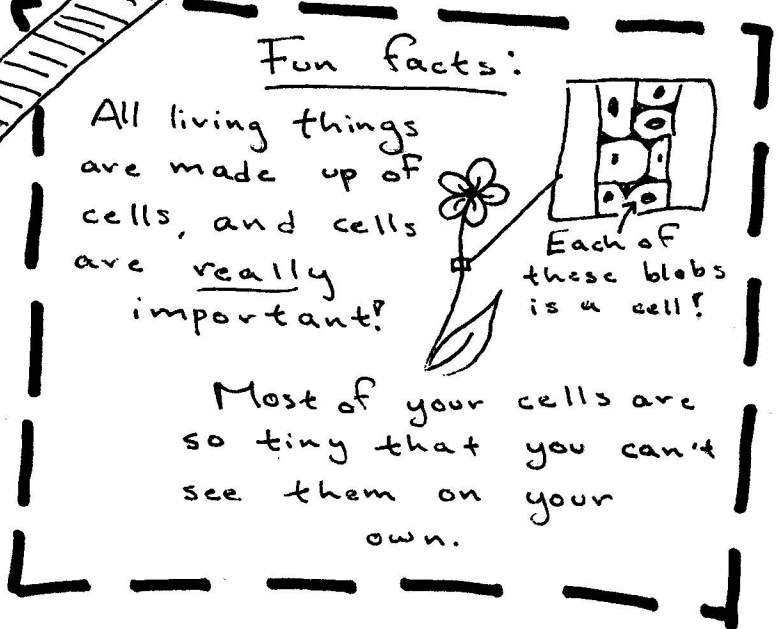 Fun facts:
All living things
are made up of
cells, and cells
are really
important!
Each of
these blobs
is a cell!
Most of your cells are
so tiny that you can't
see them on your
own.